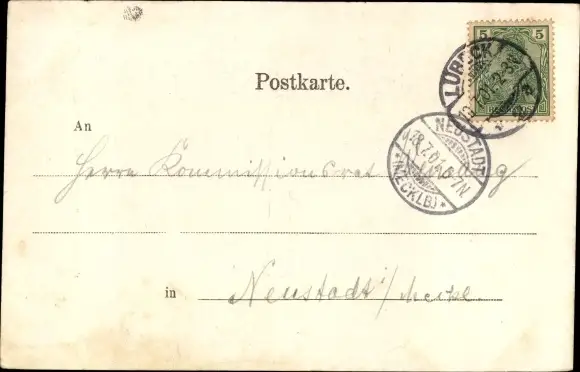 5 5
LÜBECK
Postkarte.
NEUSTADT
18.7.01. 6-7N
(MECKLB) *
An
Herrn Kommissionsrat
in Neustadt i/Meckl.